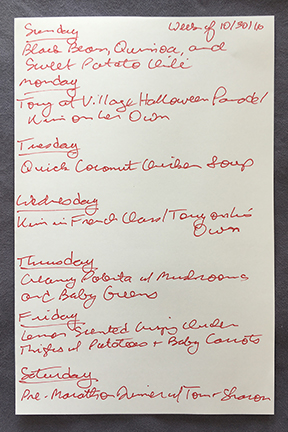 Sunday Week of 10/30/16
Black Bean, Quinoa, and
Sweet Potato Chili
Monday
Tony at Village Halloween Parade/
Kim on her Own
Tuesday
Quick Coconut Chicken Soup
Wednesday
Kim in French Class/Tony on his
Own
Thursday
Creamy Polenta w/ Mushrooms
and Baby Greens
Friday
Lemon Scented Crispy Chicken
Thighs w/ Potatoes + Baby Carrots
Saturday
Pre-Marathon Dinner w/ Tom + Sharon